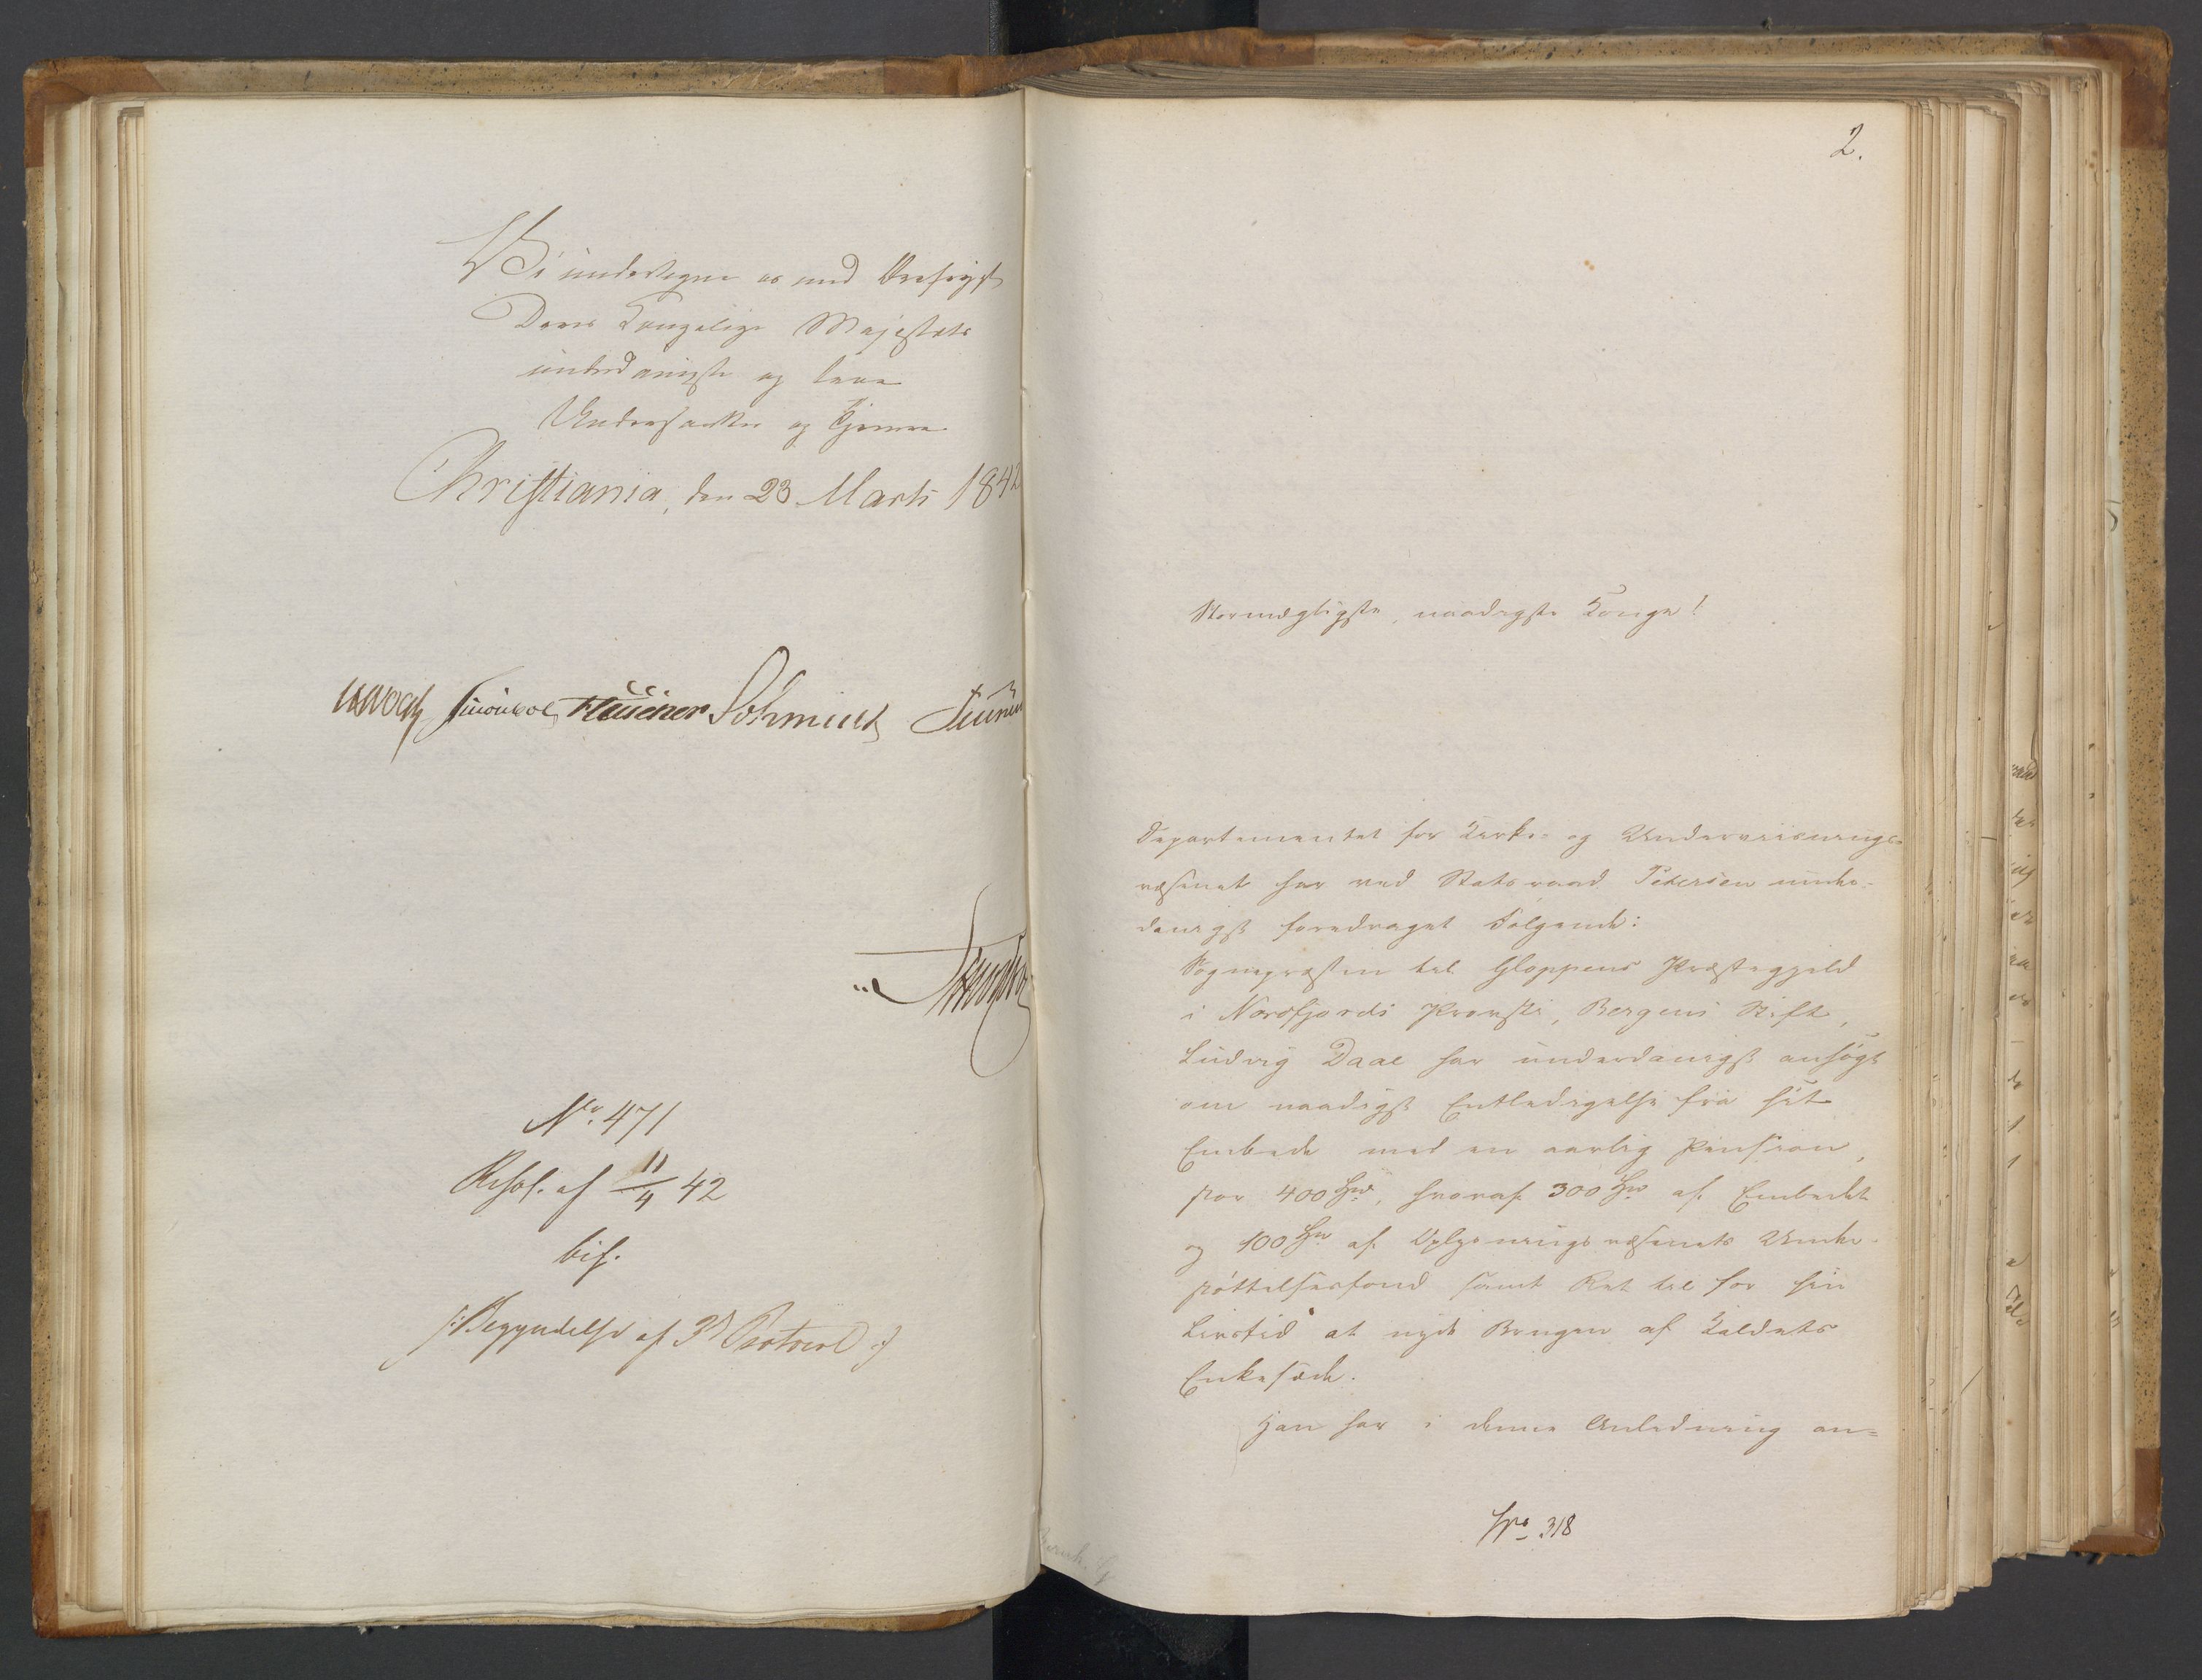 Vi undertegne os med Ærefrygt
Deres Kongelige Majestæts
underdanigste og troe
Undersaatter og Tjenere
Christiania, den 23 Marts 1842
Vogt Sibbern Schmidt
No. 471
Resol. af 11/4 42
bif.
/: Begyndelse af 3d Protocol :/
2.
Stormægtigste, naadigste Konge!
Departementet for Kirke- og Underviisnings-
væsenet har ved Statsraad Petersen under-
danigst foredraget Følgende:
Sognepræsten til Gloppens Præstegjeld
i Nordfjords Provsti, Bergens Stift,
Ludvig Daae har underdanigst ansøgt
om naadigst Entledigelse fra sit
Embede med en aarlig Pension,
stor 400 Spd, hvoraf 300 Spd af Embedet
og 100 Spd af Oplysningsvæsenets Under-
støttelsesfond samt Ret til for sin
Livstid at nyde Brugen af Kaldets
Enkesæde.
Han har i denne Anledning an-
No 318